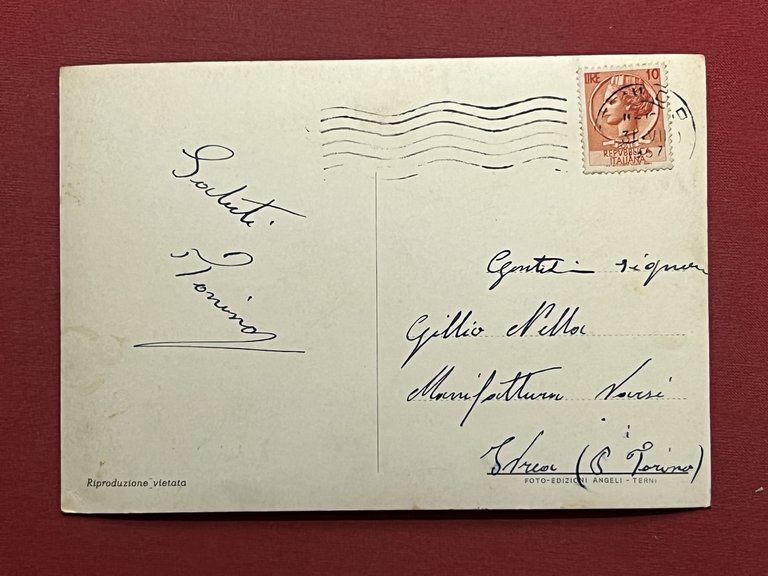 LIRE 10
REPVBBLICA
ITALIANA
Saluti
Tonino
Gentil signora
Gillio Nella
Manifattura Varsi
Ivrea (P Torino)
Riproduzione vietata
FOTO-EDIZIONI ANGELI - TERNI